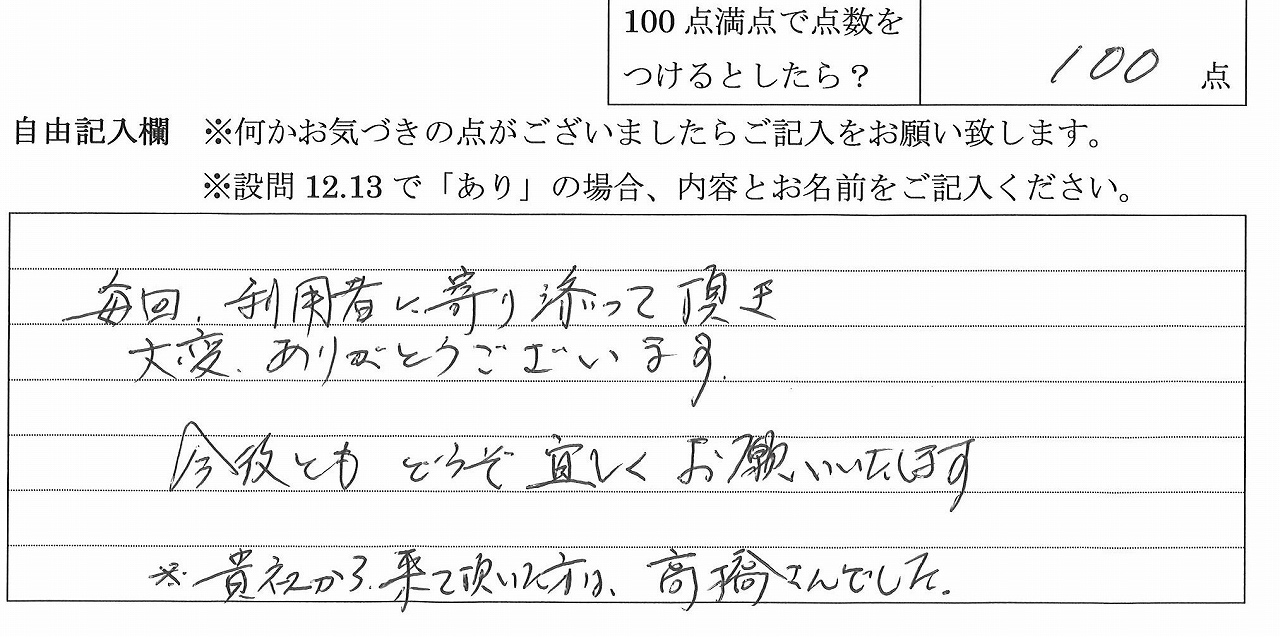 100 点満点で点数を
つけるとしたら？
100 点
自由記入欄 ※何かお気づきの点がございましたらご記入をお願い致します。
※設問 12.13 で「あり」の場合、内容とお名前をご記入ください。
毎回、利用者に寄り添って頂き
大変、ありがとうございます。
今後とも どうぞ宜しくお願いいたします
※貴社から来て頂いた方は、高橋さんでした。